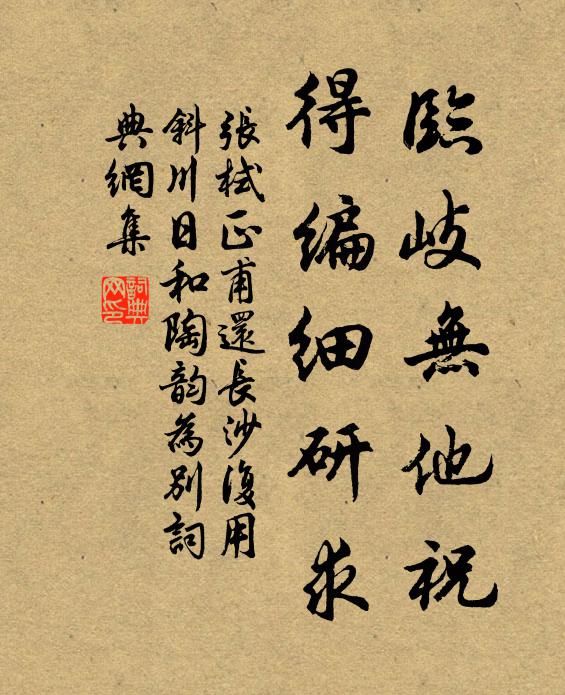 臨岐無他祝
得編細研求
張栻正甫還長沙復用
斜川日和陶韵為別詞
典網集
詞典網印